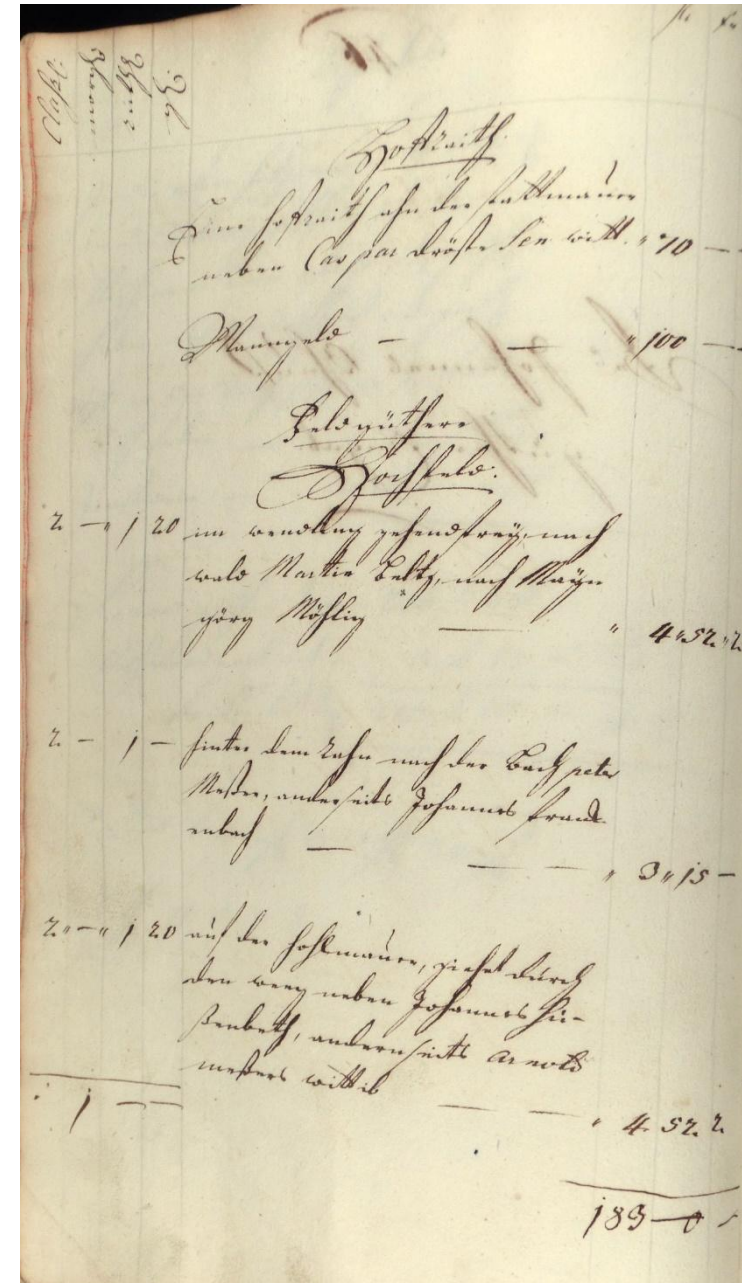 Claß
Hoffraith.
Eine hoffraith ahn der stattmauer
neben Caspar dröste Sen witt. " 70 —
Manngeld — — " 100 —
Feldgüther
Hochfeld.
2 — " 1 20 im wendling zehendfrey, nach
wald Martin Beltz, nach Mayn
görg Möhlig — " 4 " 52 " 2
2 — 1 — hinter dem Zahn nach der Bach peter
Meßer, anderseits Johannes frank-
enbach — — " 3 " 15 —
2 " — " 1 20 auf der hohlmauer, ziehet durch
den weeg neben Johannes hü-
ßenbeth, andernseits arnold
meßers wittib — — " 4 52 2
1 — —
183 — 0